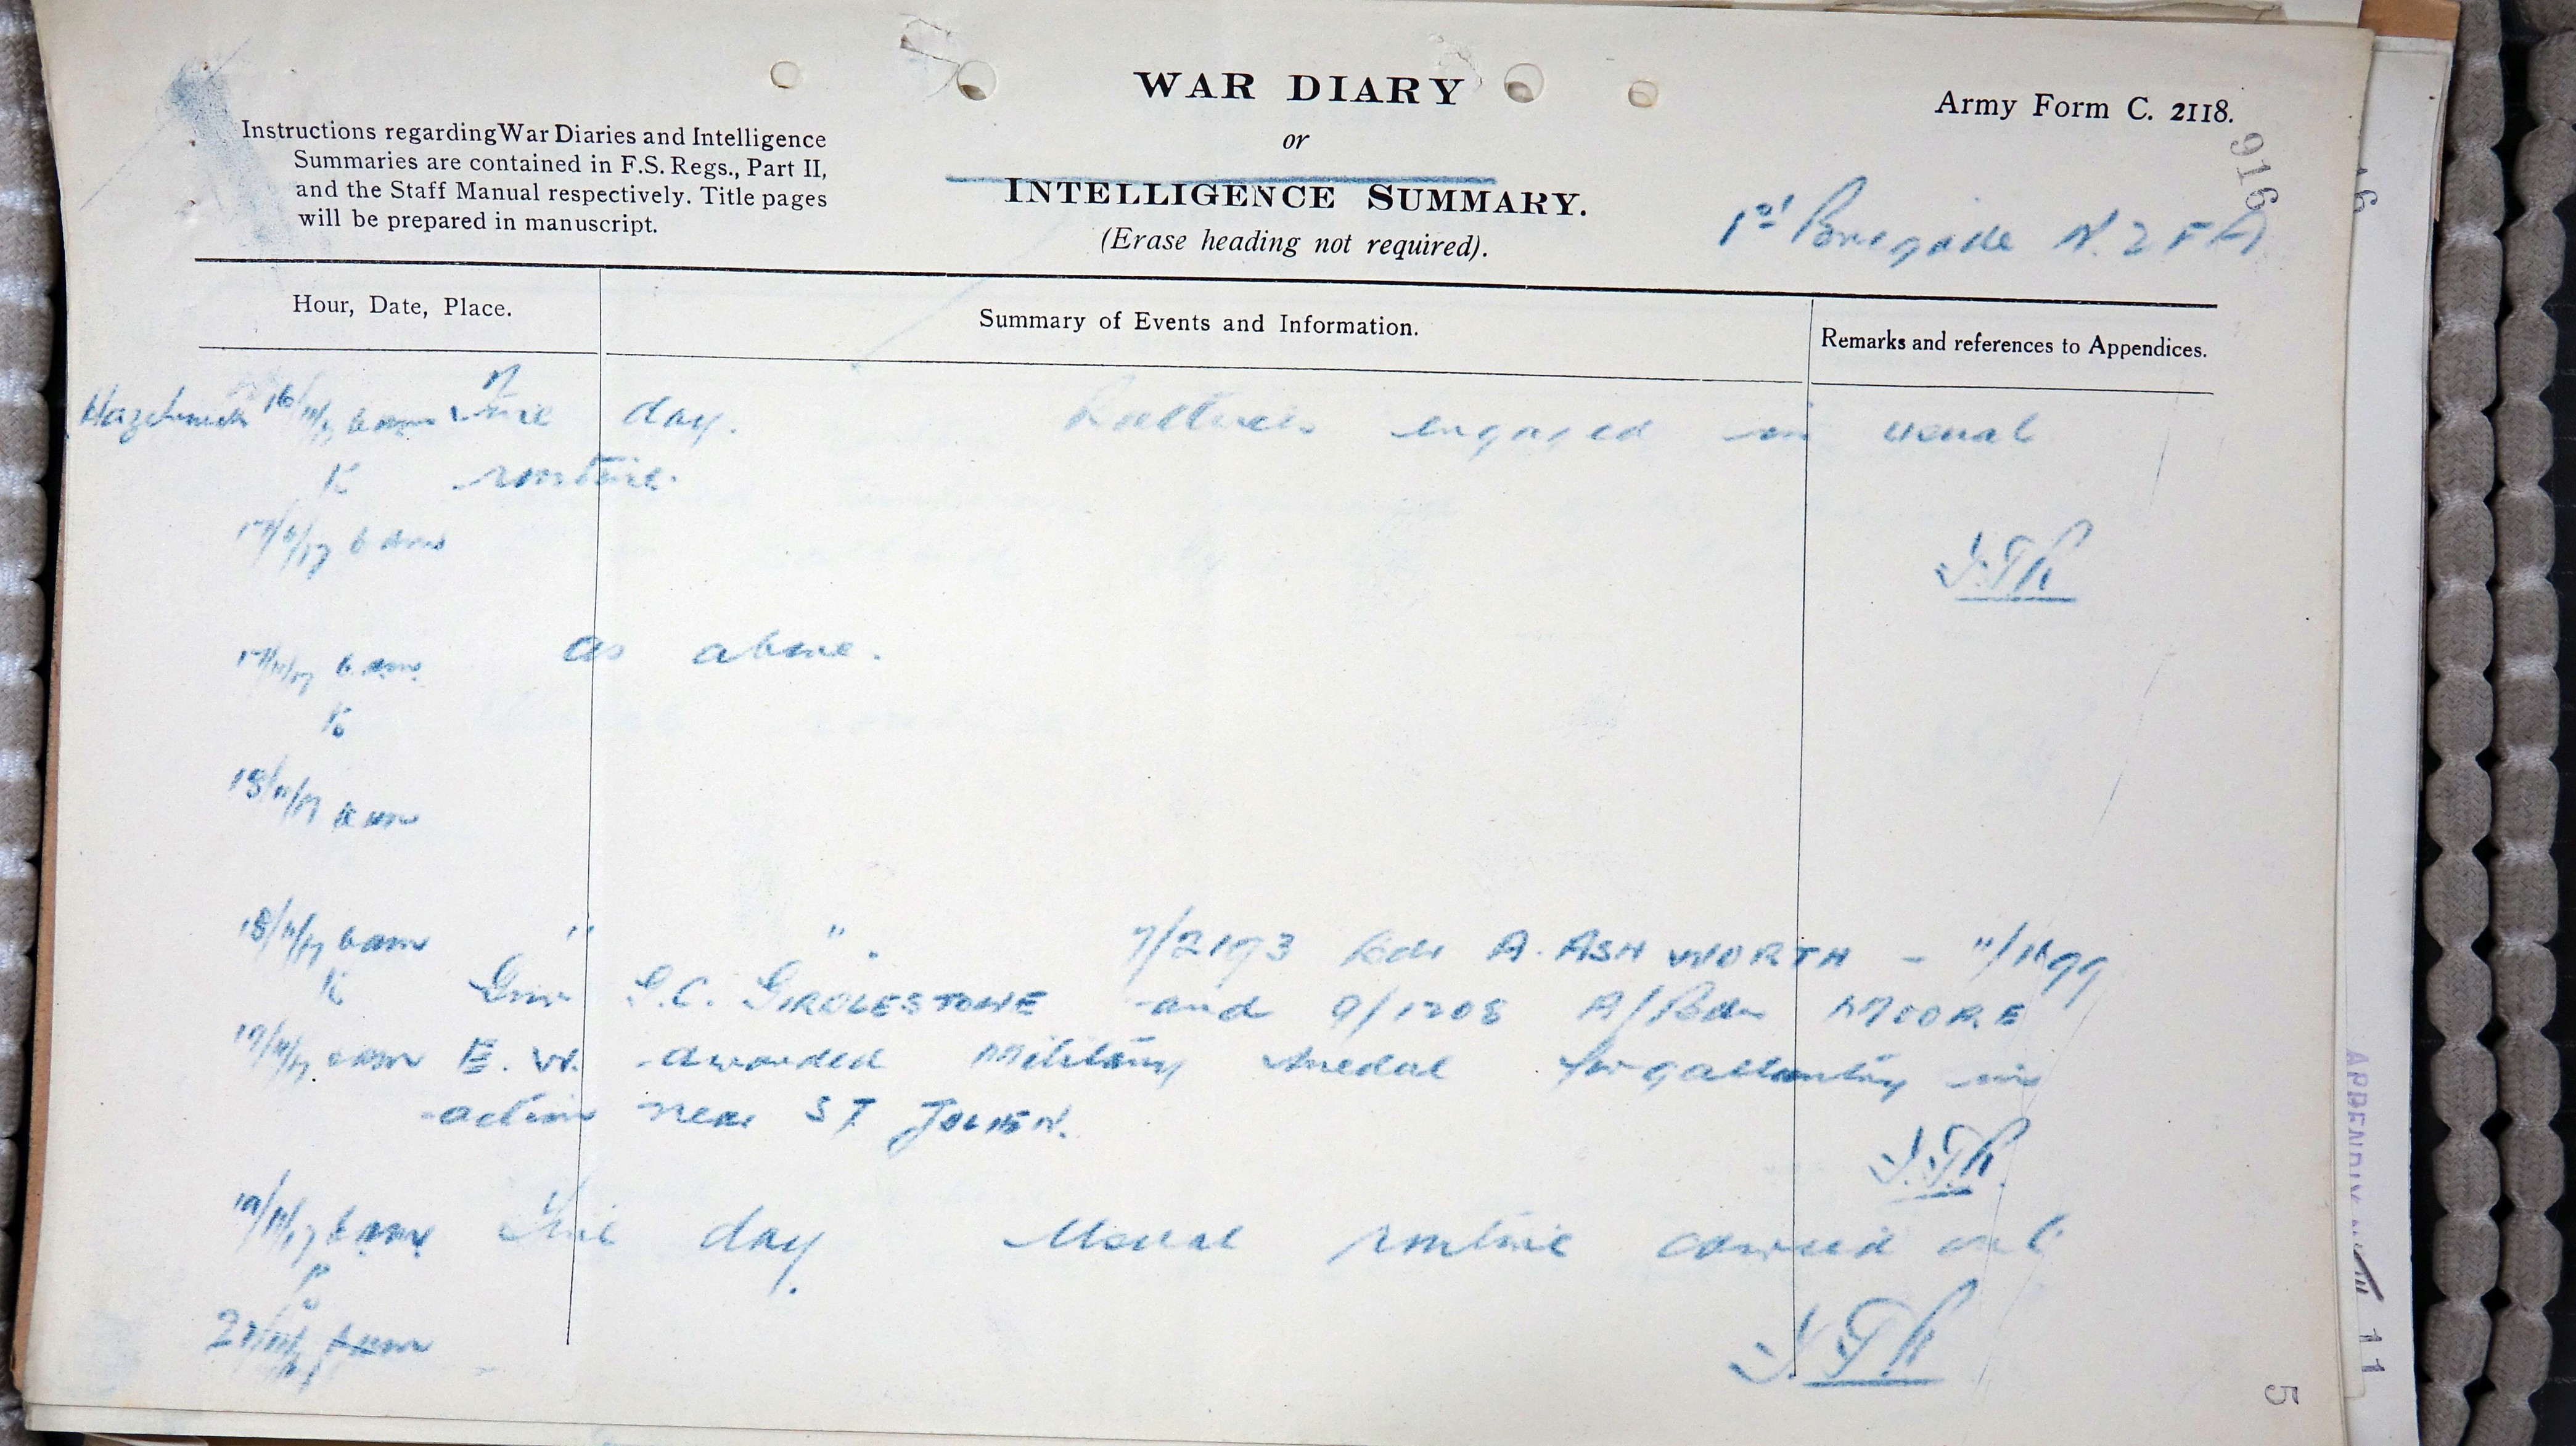 WAR DIARY
or
INTELLIGENCE SUMMARY.
(Erase heading not required).
Instructions regarding War Diaries and Intelligence
Summaries are contained in F.S. Regs., Part II,
and the Staff Manual respectively. Title pages
will be prepared in manuscript.
Army Form C. 2118.
916
1st Brigade N.Z.F.A.
Hour, Date, Place.
Summary of Events and Information.
Remarks and references to Appendices.
16/11/17 6 am Fine day. Batteries engaged in usual
to routine.
17/11/17 6 am
17/11/17 6 am as above.
to
18/11/17 6 am
18/11/17 6 am " ". 7/2193 Bdr A. ASHWORTH - 11/1699
to Gnr G.C. GIRDLESTONE and 9/1208 A/Bdr MOORE
19/11/17 6 am E. W. awarded Military Medal for gallantry in
action near ST JULIEN.
19/11/17 6 am Fine day. Usual routine carried out
to
6 am
APPENDIX
11
5